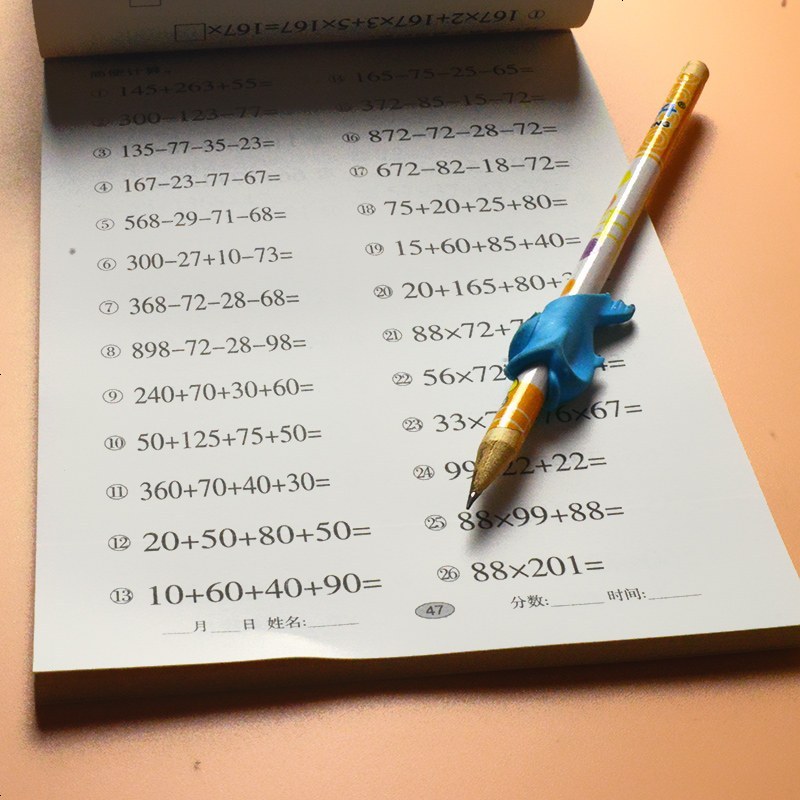 ① 167×2+167×3+5×167=167×
① 145+263+55=
② 300−123−77=
③ 135−77−35−23=
④ 167−23−77−67=
⑤ 568−29−71−68=
⑥ 300−27+10−73=
⑦ 368−72−28−68=
⑧ 898−72−28−98=
⑨ 240+70+30+60=
⑩ 50+125+75+50=
⑪ 360+70+40+30=
⑫ 20+50+80+50=
⑬ 10+60+40+90=
⑭ 165−75−25−65=
⑮ 372−85−15−72=
⑯ 872−72−28−72=
⑰ 672−82−18−72=
⑱ 75+20+25+80=
⑲ 15+60+85+40=
⑳ 20+165+80+
㉑ 88×72+
㉒ 56×72 =
㉓ 33× 6×67=
㉔ 99 22+22=
㉕ 88×99+88=
㉖ 88×201=
____月____日 姓名:______
47
分数:______ 时间:______